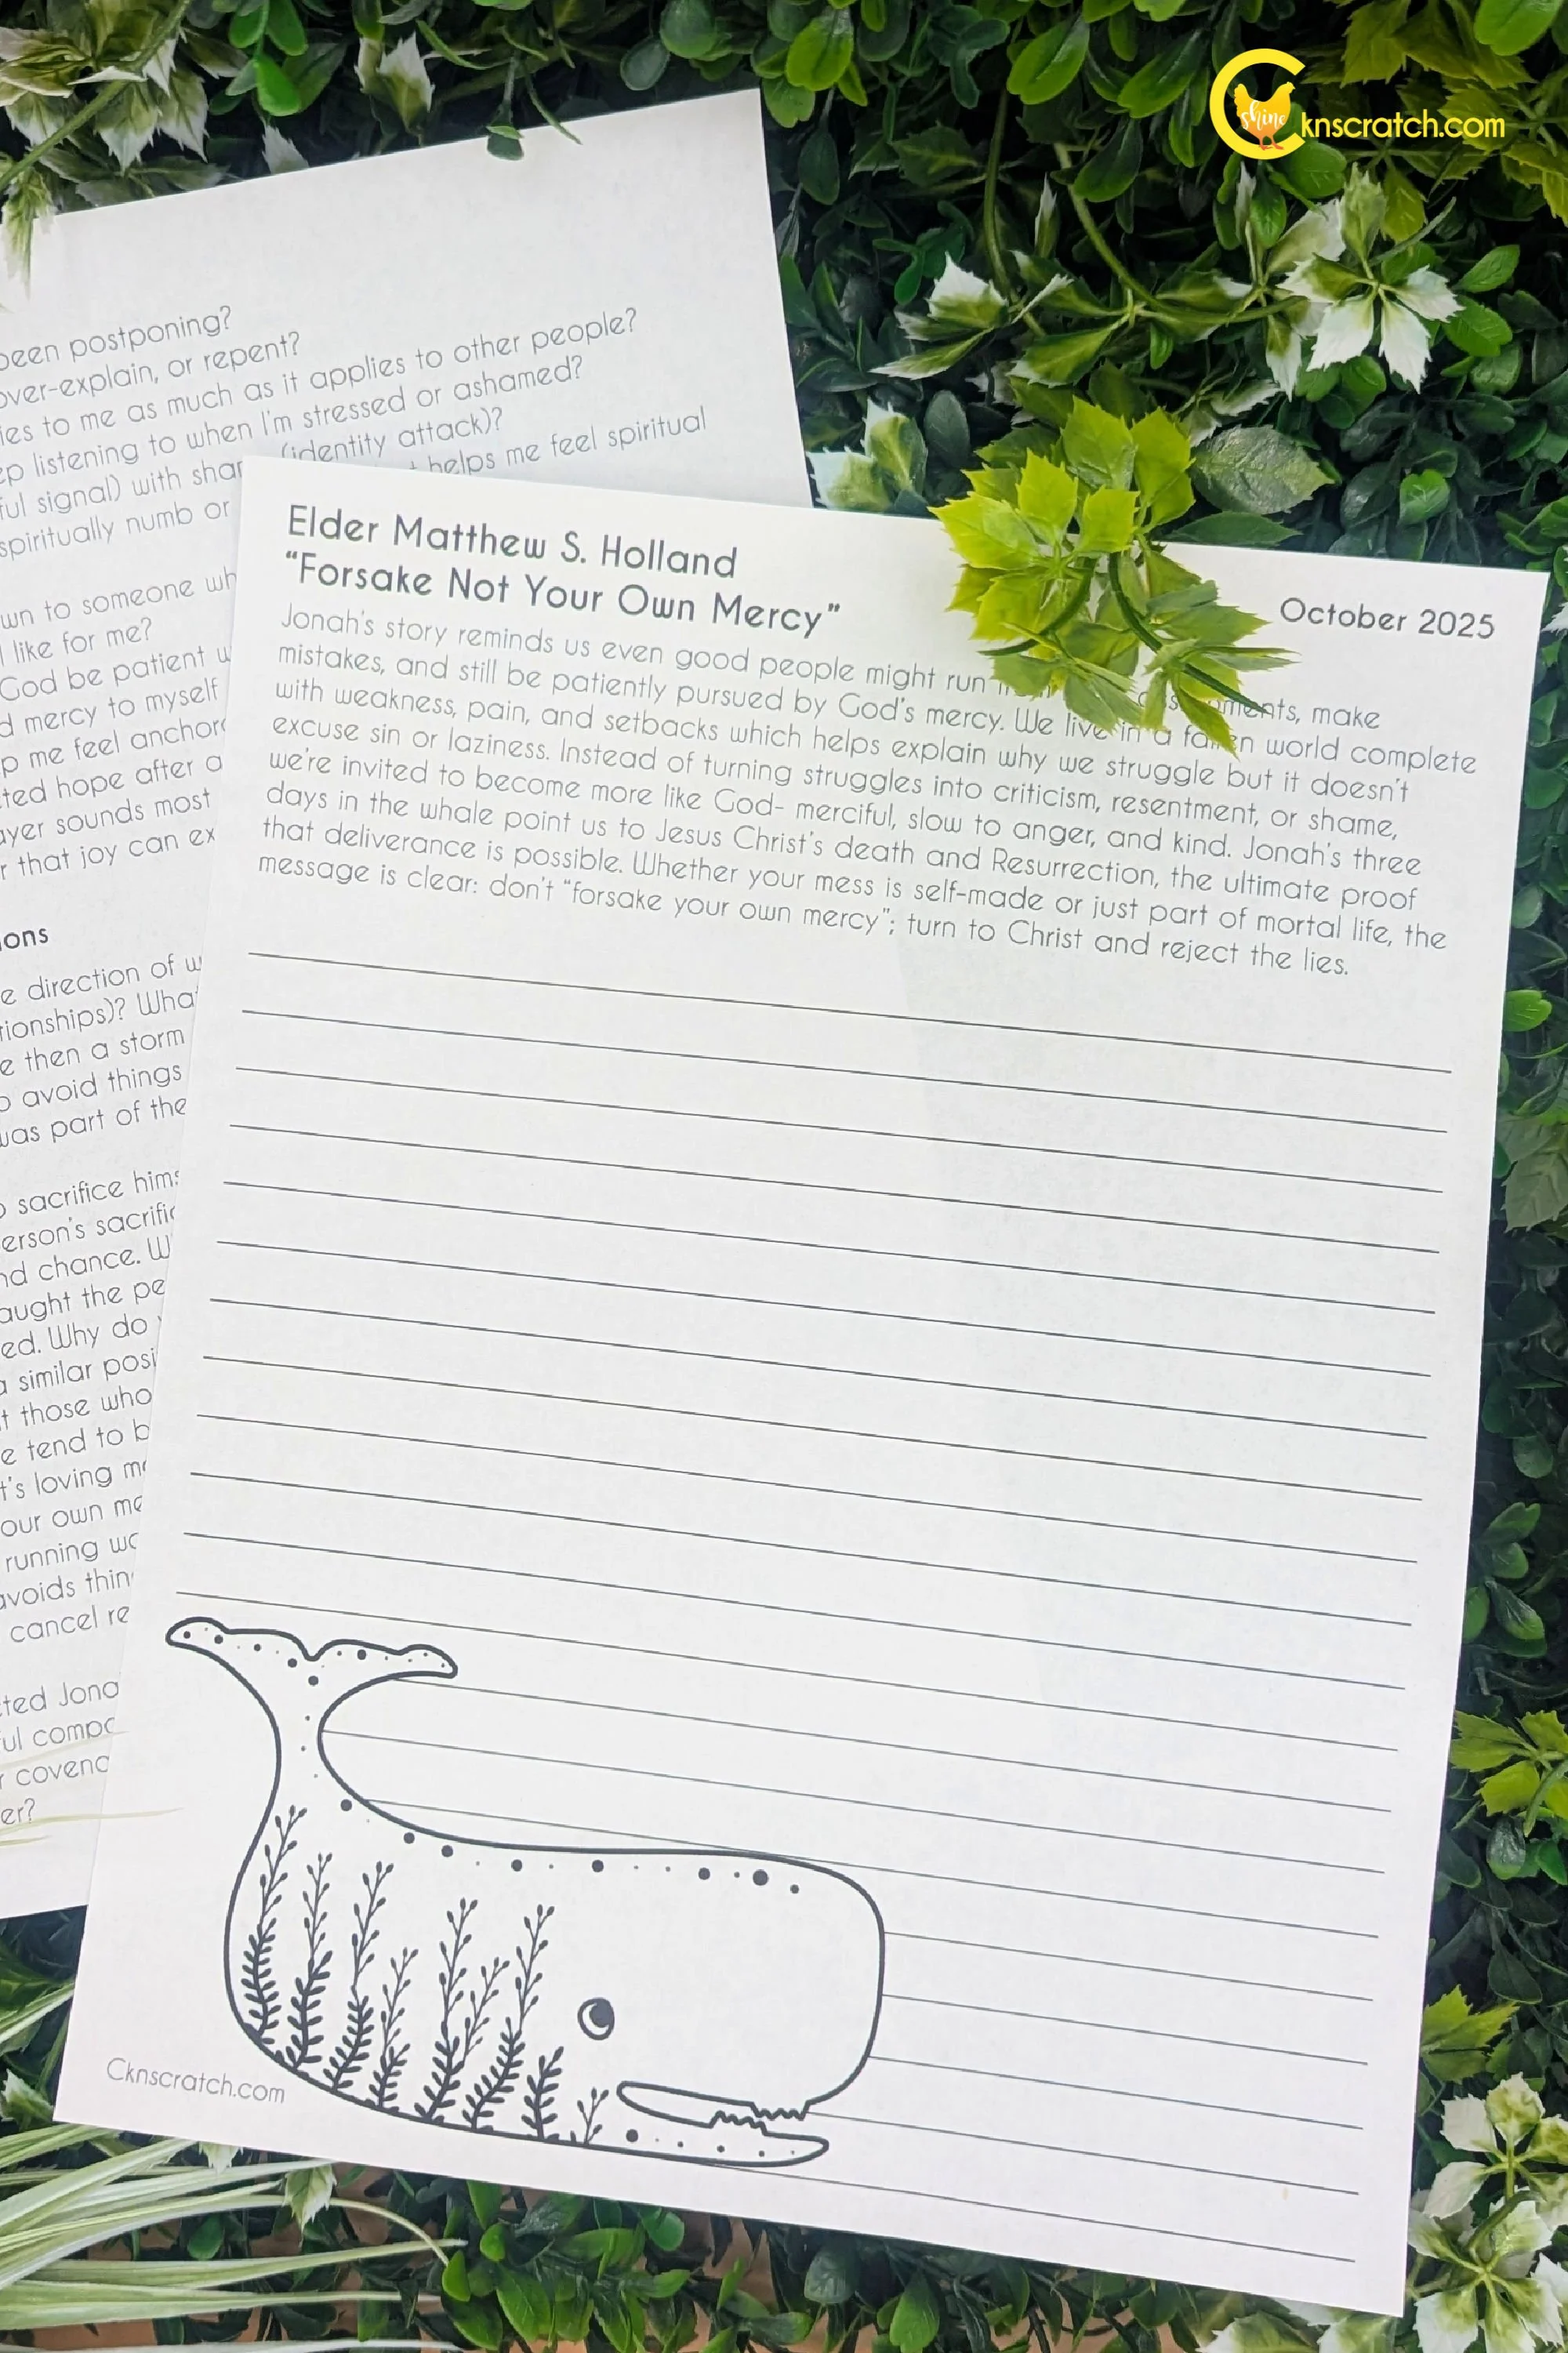 shine
knscratch.com
been postponing?
over-explain, or repent?
to me as much as it applies to other people?
listening to when I'm stressed or ashamed?
signal) with (identity attack)?
spiritually numb or helps me feel spiritual
to someone
like for me?
God be patient
mercy to myself
me feel
hope after a
sounds most
that joy can
direction of
then a storm
avoid things
was part of the
sacrifice
chance.
the
Why do
similar
those who
tend to
loving
own
running
cancel
Elder Matthew S. Holland
"Forsake Not Your Own Mercy"
October 2025
Jonah's story reminds us even good people might run make
mistakes, and still be patiently pursued by God's mercy. We live in a fallen world complete
with weakness, pain, and setbacks which helps explain why we struggle but it doesn't
excuse sin or laziness. Instead of turning struggles into criticism, resentment, or shame,
we're invited to become more like God- merciful, slow to anger, and kind. Jonah's three
days in the whale point us to Jesus Christ's death and Resurrection, the ultimate proof
that deliverance is possible. Whether your mess is self-made or just part of mortal life, the
message is clear: don't "forsake your own mercy"; turn to Christ and reject the lies.
Cknscratch.com